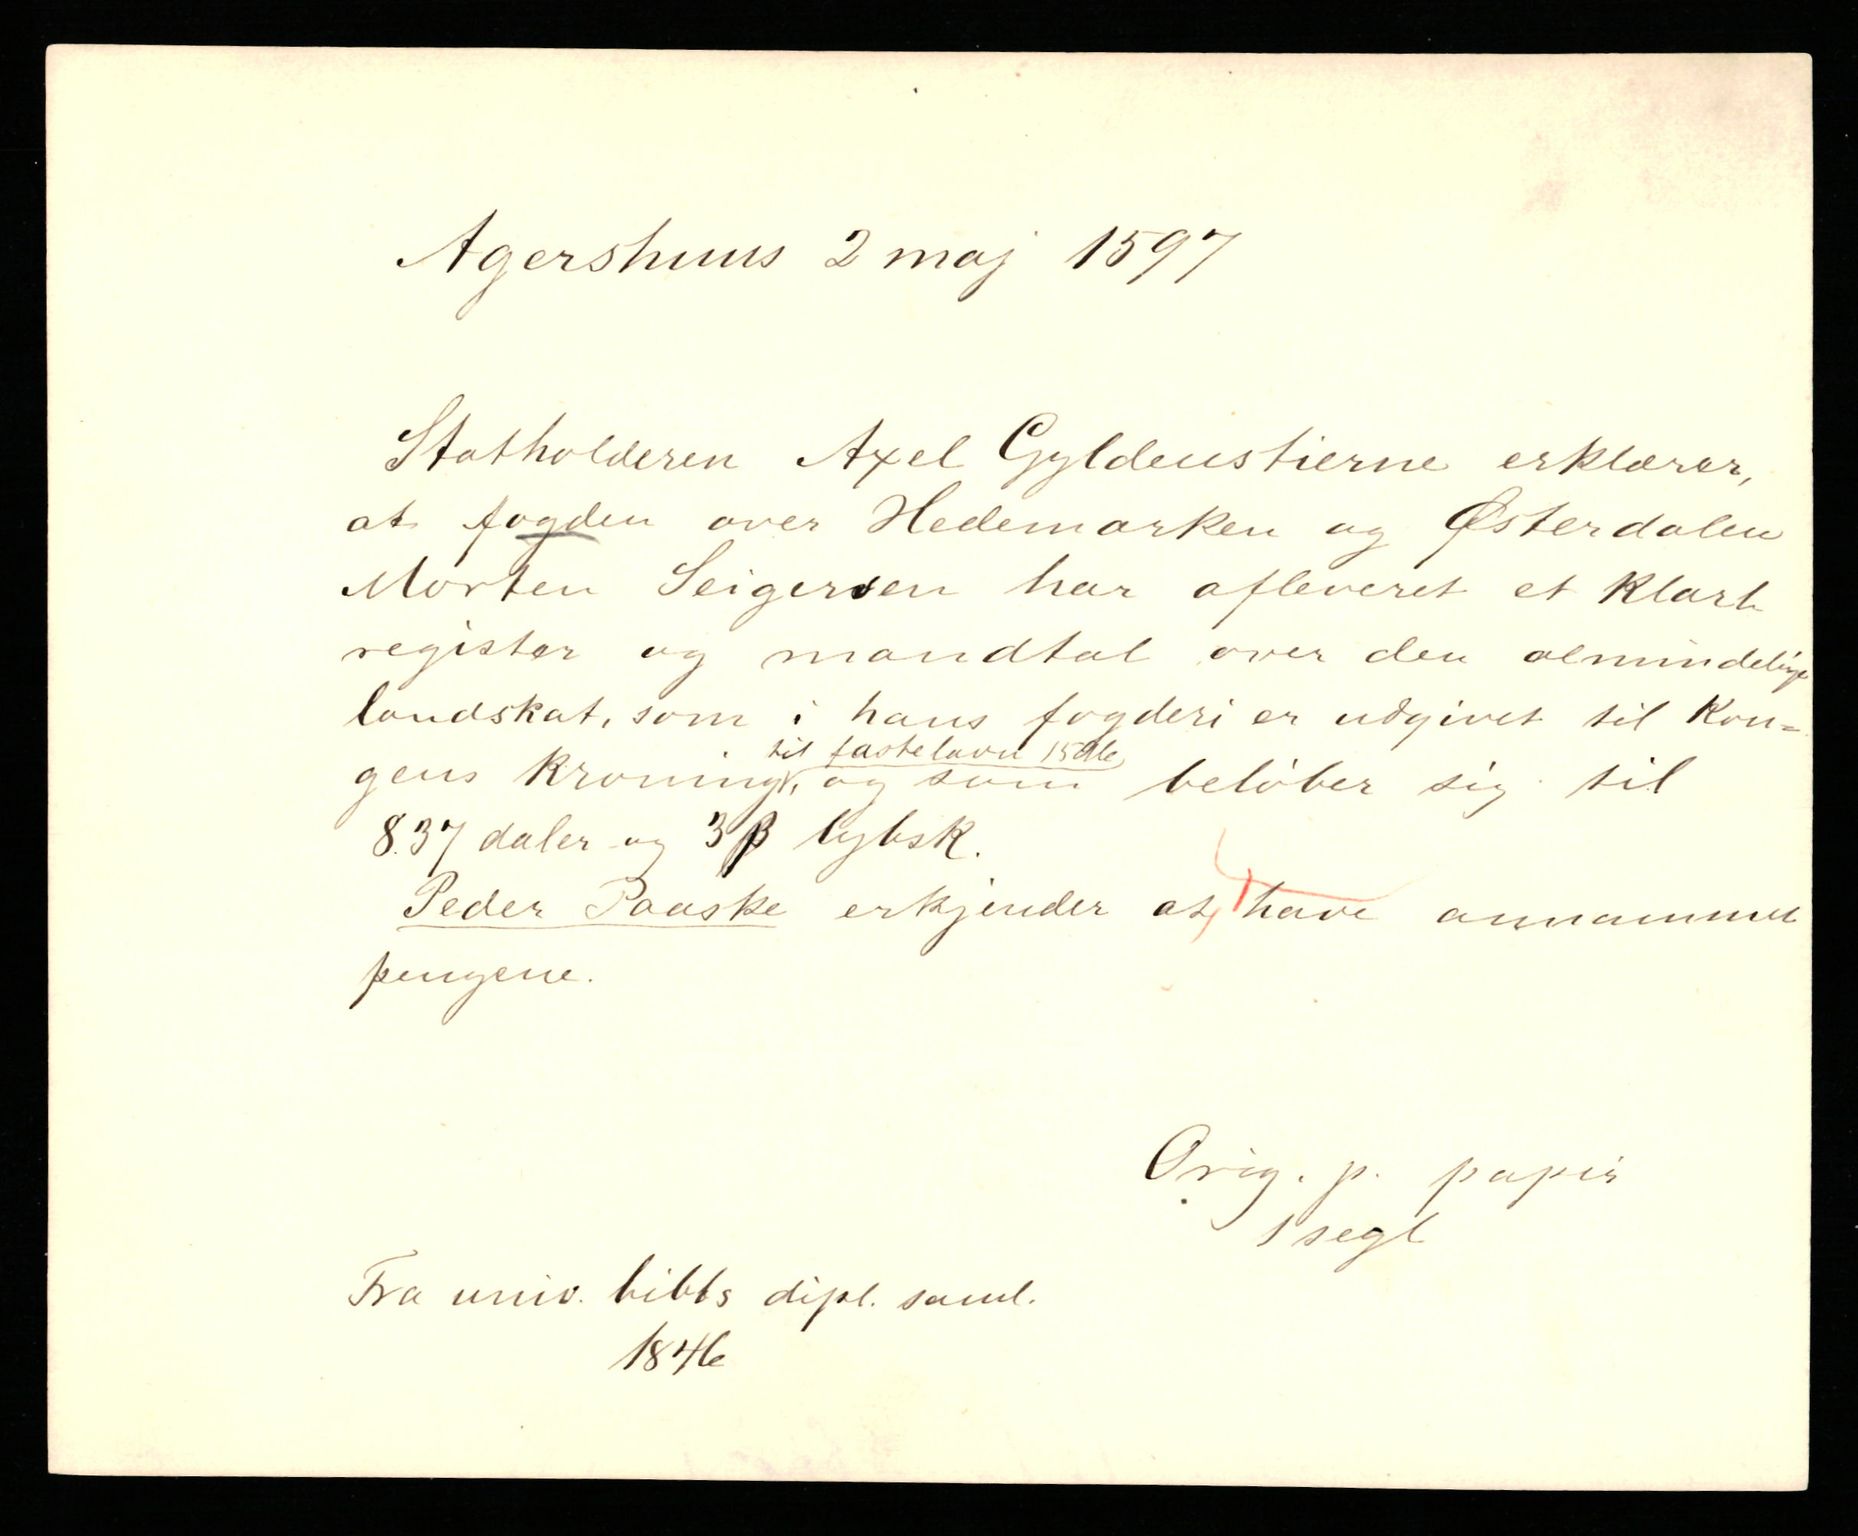 Agershuus 2 maj 1597
Statholderen Axel Gyldenstierne erklærer,
at fogden over Hedemarken og Østerdalen
Morten Seigersen har afleveret et klart
register og mandtal over den almindelige
landskat, som i hans fogderi er udgivet til kon=
til fastelavn 1596
gens kroning, og som beløber sig til
837 daler og 3 β lybsk.
Peder Paaske erkjender at have annammet
pengene.
Orig. p. papir
1 segl
Fra univ. bibls dipl. saml.
1846